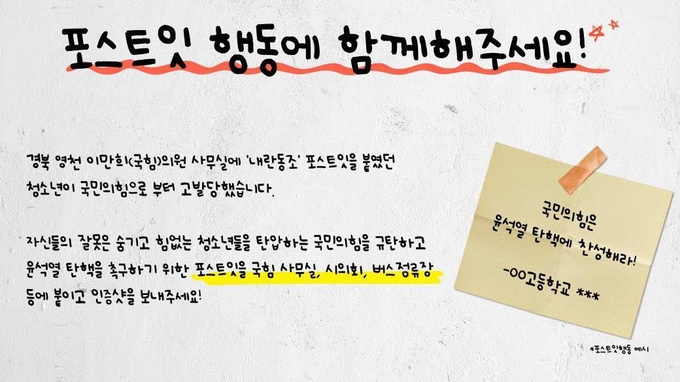 포스트잇 행동에 함께해주세요!
경북 영천 이만희(국힘)의원 사무실에 '내란동조' 포스트잇을 붙였던
청소년이 국민의힘으로 부터 고발당했습니다.
자신들의 잘못은 숨기고 힘없는 청소년들을 탄압하는 국민의힘을 규탄하고
윤석열 탄핵을 촉구하기 위한 포스트잇을 국힘 사무실, 시의회, 버스정류장
등에 붙이고 인증샷을 보내주세요!
국민의힘은
윤석열 탄핵에 찬성해라!
-OO고등학교 ***
*포스트잇행동 예시